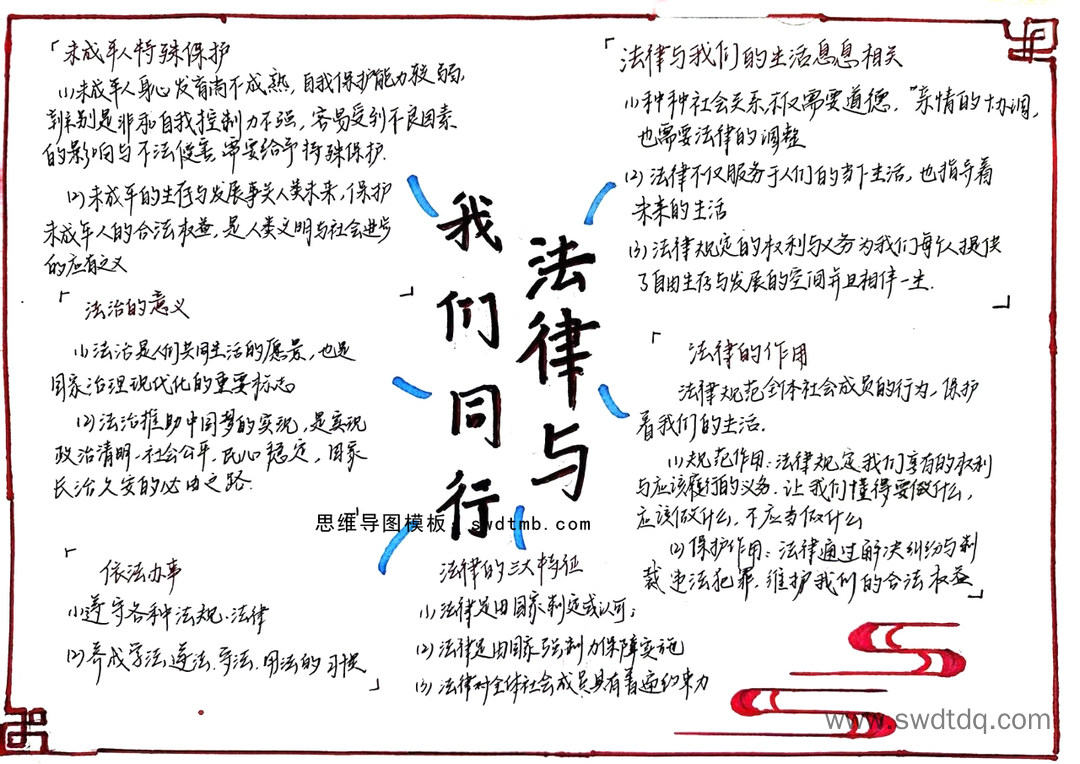 「未成年人特殊保护
(1)未成年人身心发育尚不成熟，自我保护能力较弱，
辨别是非和自我控制力不强，容易受到不良因素
的影响与不法侵害，需要给予特殊保护.
(2)未成年的生存与发展事关人类未来，保护
未成年人的合法权益，是人类文明与社会进步
的应有之义」
「法治的意义
(1)法治是人们共同生活的愿景，也是
国家治理现代化的重要标志
(2)法治推助中国梦的实现，是实现
政治清明.社会公平.民心稳定，国家
长治久安的必由之路.
「依法办事
(1)遵守各种法规.法律
(2)养成学法.遵法.守法.用法的习惯」
法律与
我们同行
思维导图模板：swdtmb.com
法律的三大特征
(1)法律是由国家制定或认可；
(2)法律是由国家强制力保障实施
(3)法律对全体社会成员具有普遍约束力
「法律与我们的生活息息相关
(1)种种社会关系，不仅需要道德，"亲情的协调，
也需要法律的调整
(2)法律不仅服务于人们的当下生活，也指导着
未来的生活
(3)法律规定的权利与义务为我们每个人提供
了自由生存与发展的空间并且相伴一生.」
「法律的作用
法律规范全体社会成员的行为，保护
着我们的生活.
(1)规范作用：法律规定我们享有的权利
与应该履行的义务.让我们懂得要做什么，
应该做什么，不应当做什么
(2)保护作用：法律通过解决纠纷与制
裁违法犯罪，维护我们的合法权益」
www.swdtdq.com